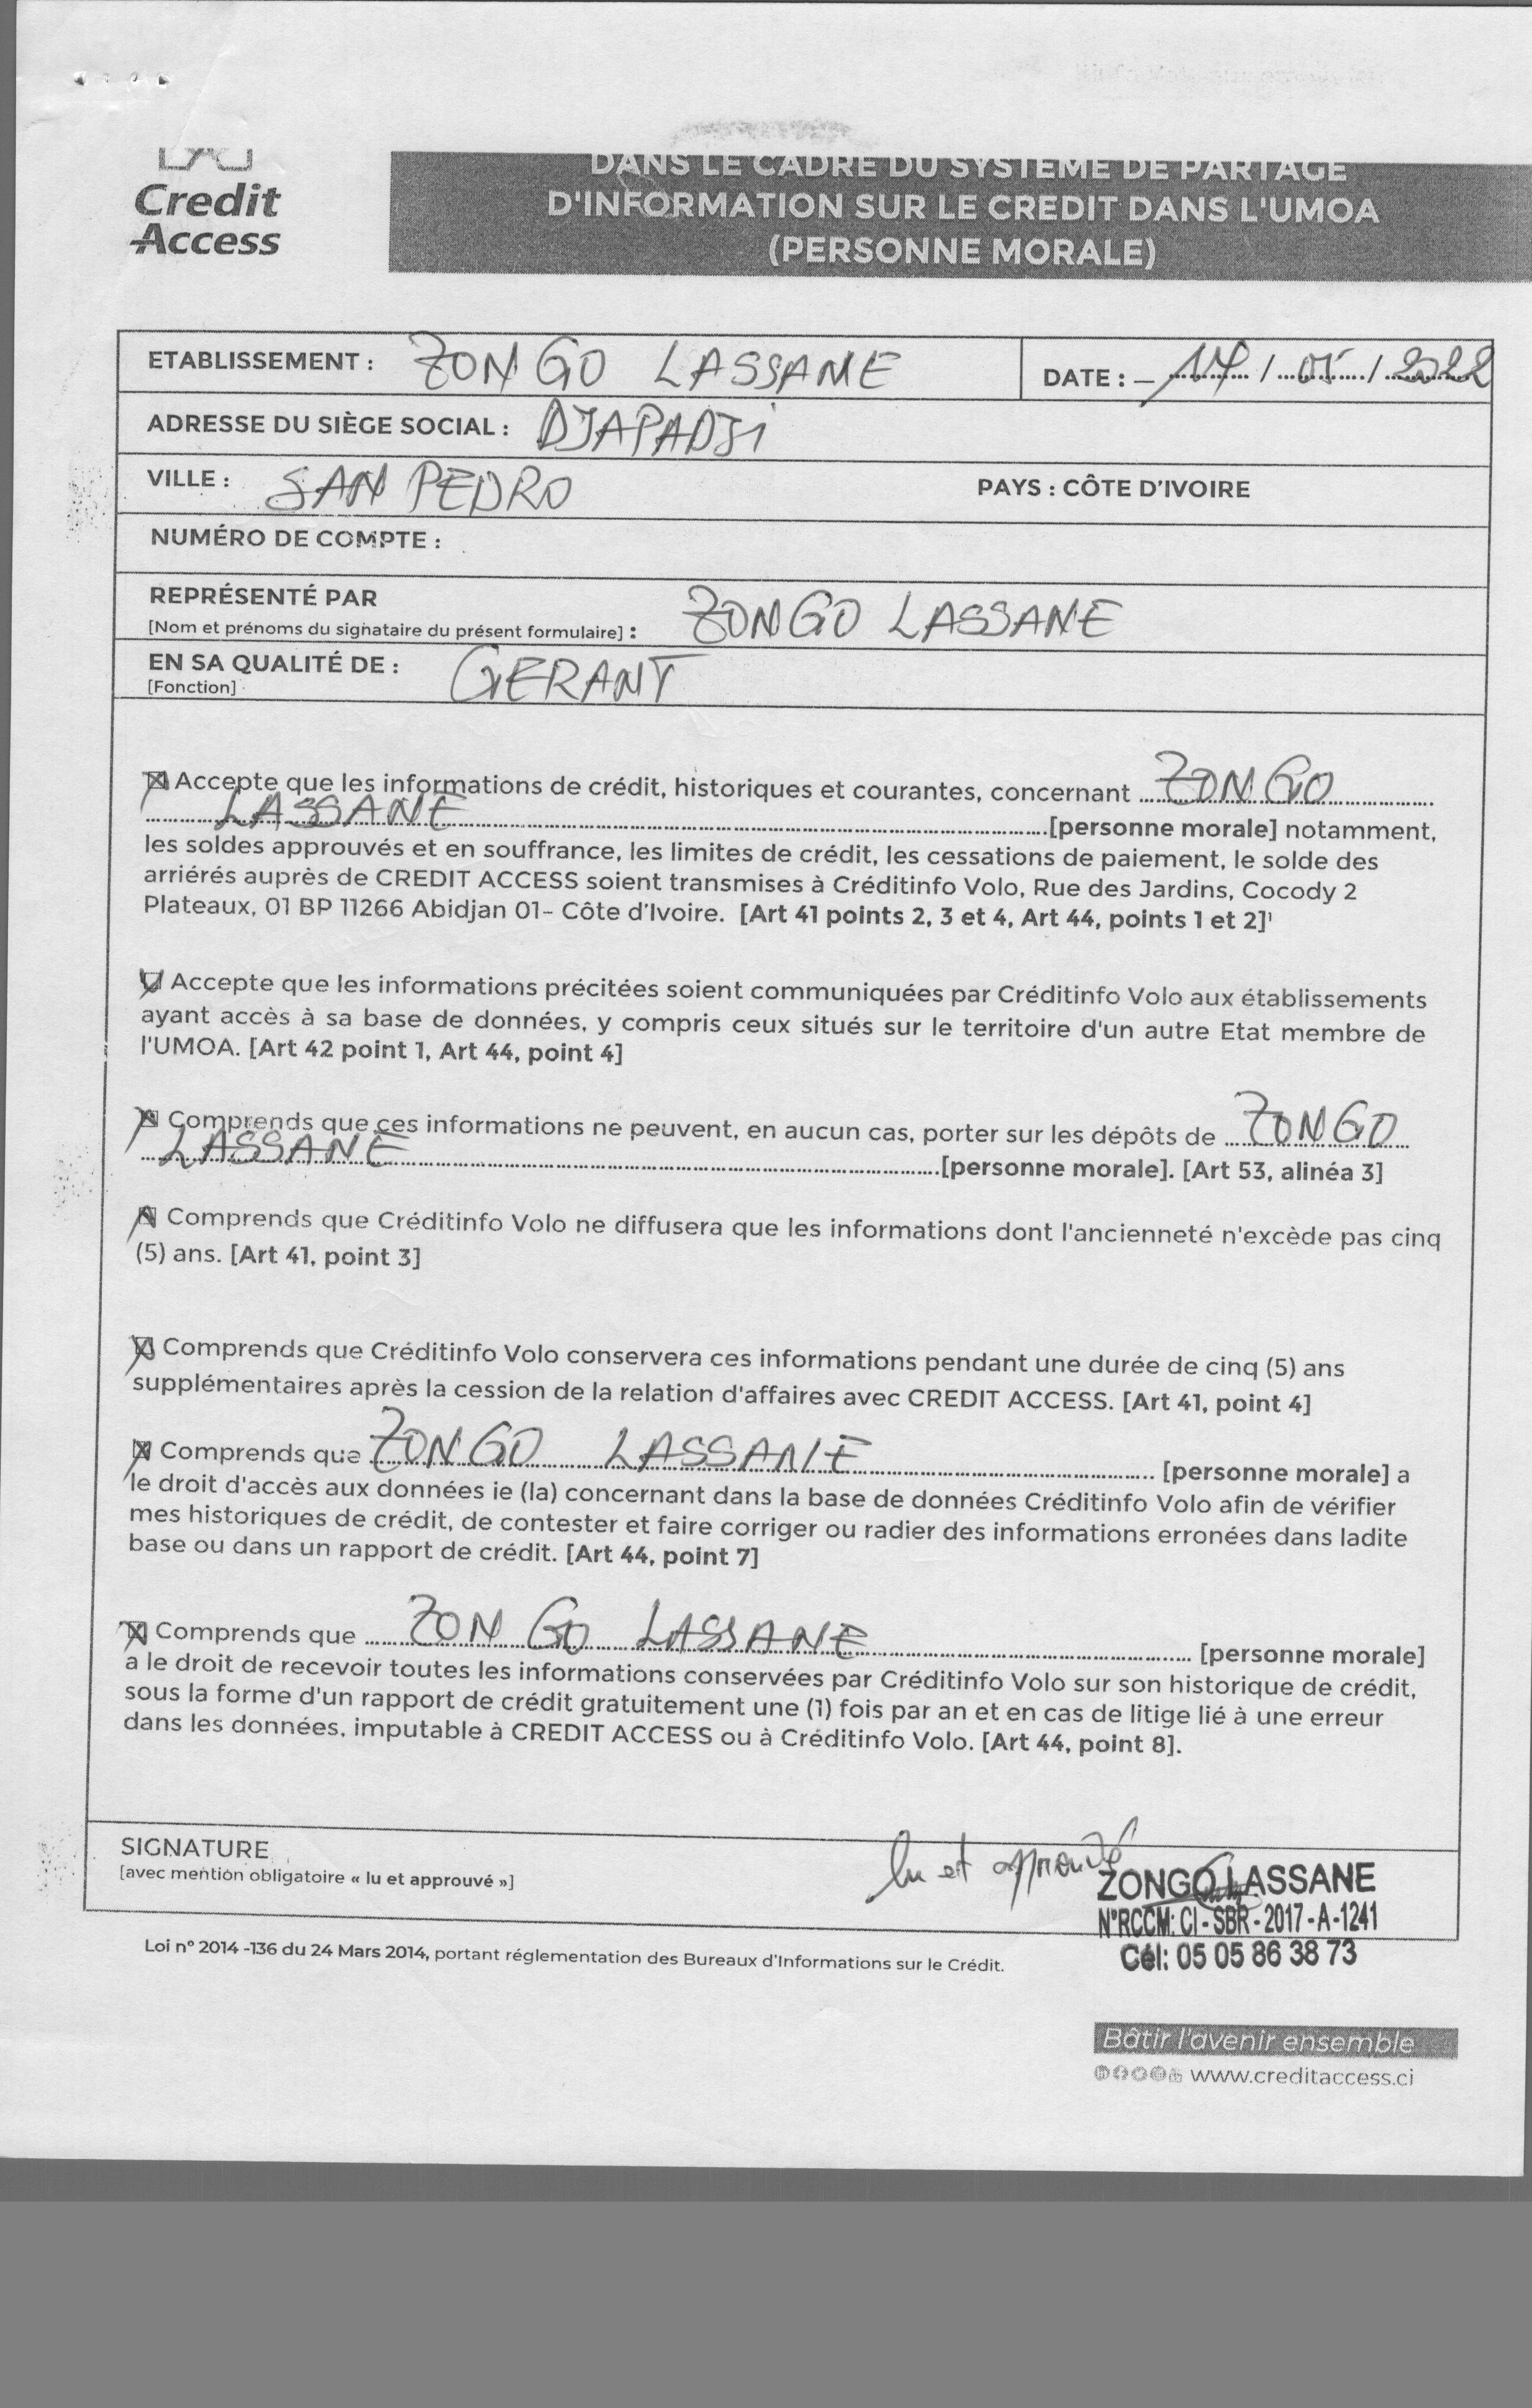 Credit
Access
DANS LE CADRE DU SYSTEME DE PARTAGE
D'INFORMATION SUR LE CREDIT DANS L'UMOA
(PERSONNE MORALE)
ETABLISSEMENT : ZONGO LASSANE
DATE : – 17 / 05 / 2022
ADRESSE DU SIÈGE SOCIAL : DJAPADJI
VILLE : SAN PEDRO PAYS : CÔTE D'IVOIRE
NUMÉRO DE COMPTE :
REPRÉSENTÉ PAR
[Nom et prénoms du signataire du présent formulaire] : ZONGO LASSANE
EN SA QUALITÉ DE : GERANT
[Fonction]
Accepte que les informations de crédit, historiques et courantes, concernant ZONGO
LASSANE [personne morale] notamment,
les soldes approuvés et en souffrance, les limites de crédit, les cessations de paiement, le solde des
arriérés auprès de CREDIT ACCESS soient transmises à Créditinfo Volo, Rue des Jardins, Cocody 2
Plateaux, 01 BP 11266 Abidjan 01- Côte d'Ivoire. [Art 41 points 2, 3 et 4, Art 44, points 1 et 2]¹
Accepte que les informations précitées soient communiquées par Créditinfo Volo aux établissements
ayant accès à sa base de données, y compris ceux situés sur le territoire d'un autre Etat membre de
l'UMOA. [Art 42 point 1, Art 44, point 4]
Comprends que ces informations ne peuvent, en aucun cas, porter sur les dépôts de ZONGO
LASSANE [personne morale]. [Art 53, alinéa 3]
Comprends que Créditinfo Volo ne diffusera que les informations dont l'ancienneté n'excède pas cinq
(5) ans. [Art 41, point 3]
Comprends que Créditinfo Volo conservera ces informations pendant une durée de cinq (5) ans
supplémentaires après la cession de la relation d'affaires avec CREDIT ACCESS. [Art 41, point 4]
Comprends que ZONGO LASSANE [personne morale] a
le droit d'accès aux données ie (la) concernant dans la base de données Créditinfo Volo afin de vérifier
mes historiques de crédit, de contester et faire corriger ou radier des informations erronées dans ladite
base ou dans un rapport de crédit. [Art 44, point 7]
Comprends que ZONGO LASSANE [personne morale]
a le droit de recevoir toutes les informations conservées par Créditinfo Volo sur son historique de crédit,
sous la forme d'un rapport de crédit gratuitement une (1) fois par an et en cas de litige lié à une erreur
dans les données, imputable à CREDIT ACCESS ou à Créditinfo Volo. [Art 44, point 8].
SIGNATURE
[avec mention obligatoire « lu et approuvé »]
lu et approuvé
ZONGO LASSANE
N°RCCM: CI - SBR - 2017 - A -1241
Cél: 05 05 86 38 73
Loi n° 2014 -136 du 24 Mars 2014, portant réglementation des Bureaux d'Informations sur le Crédit.
Bâtir l'avenir ensemble
www.creditaccess.ci